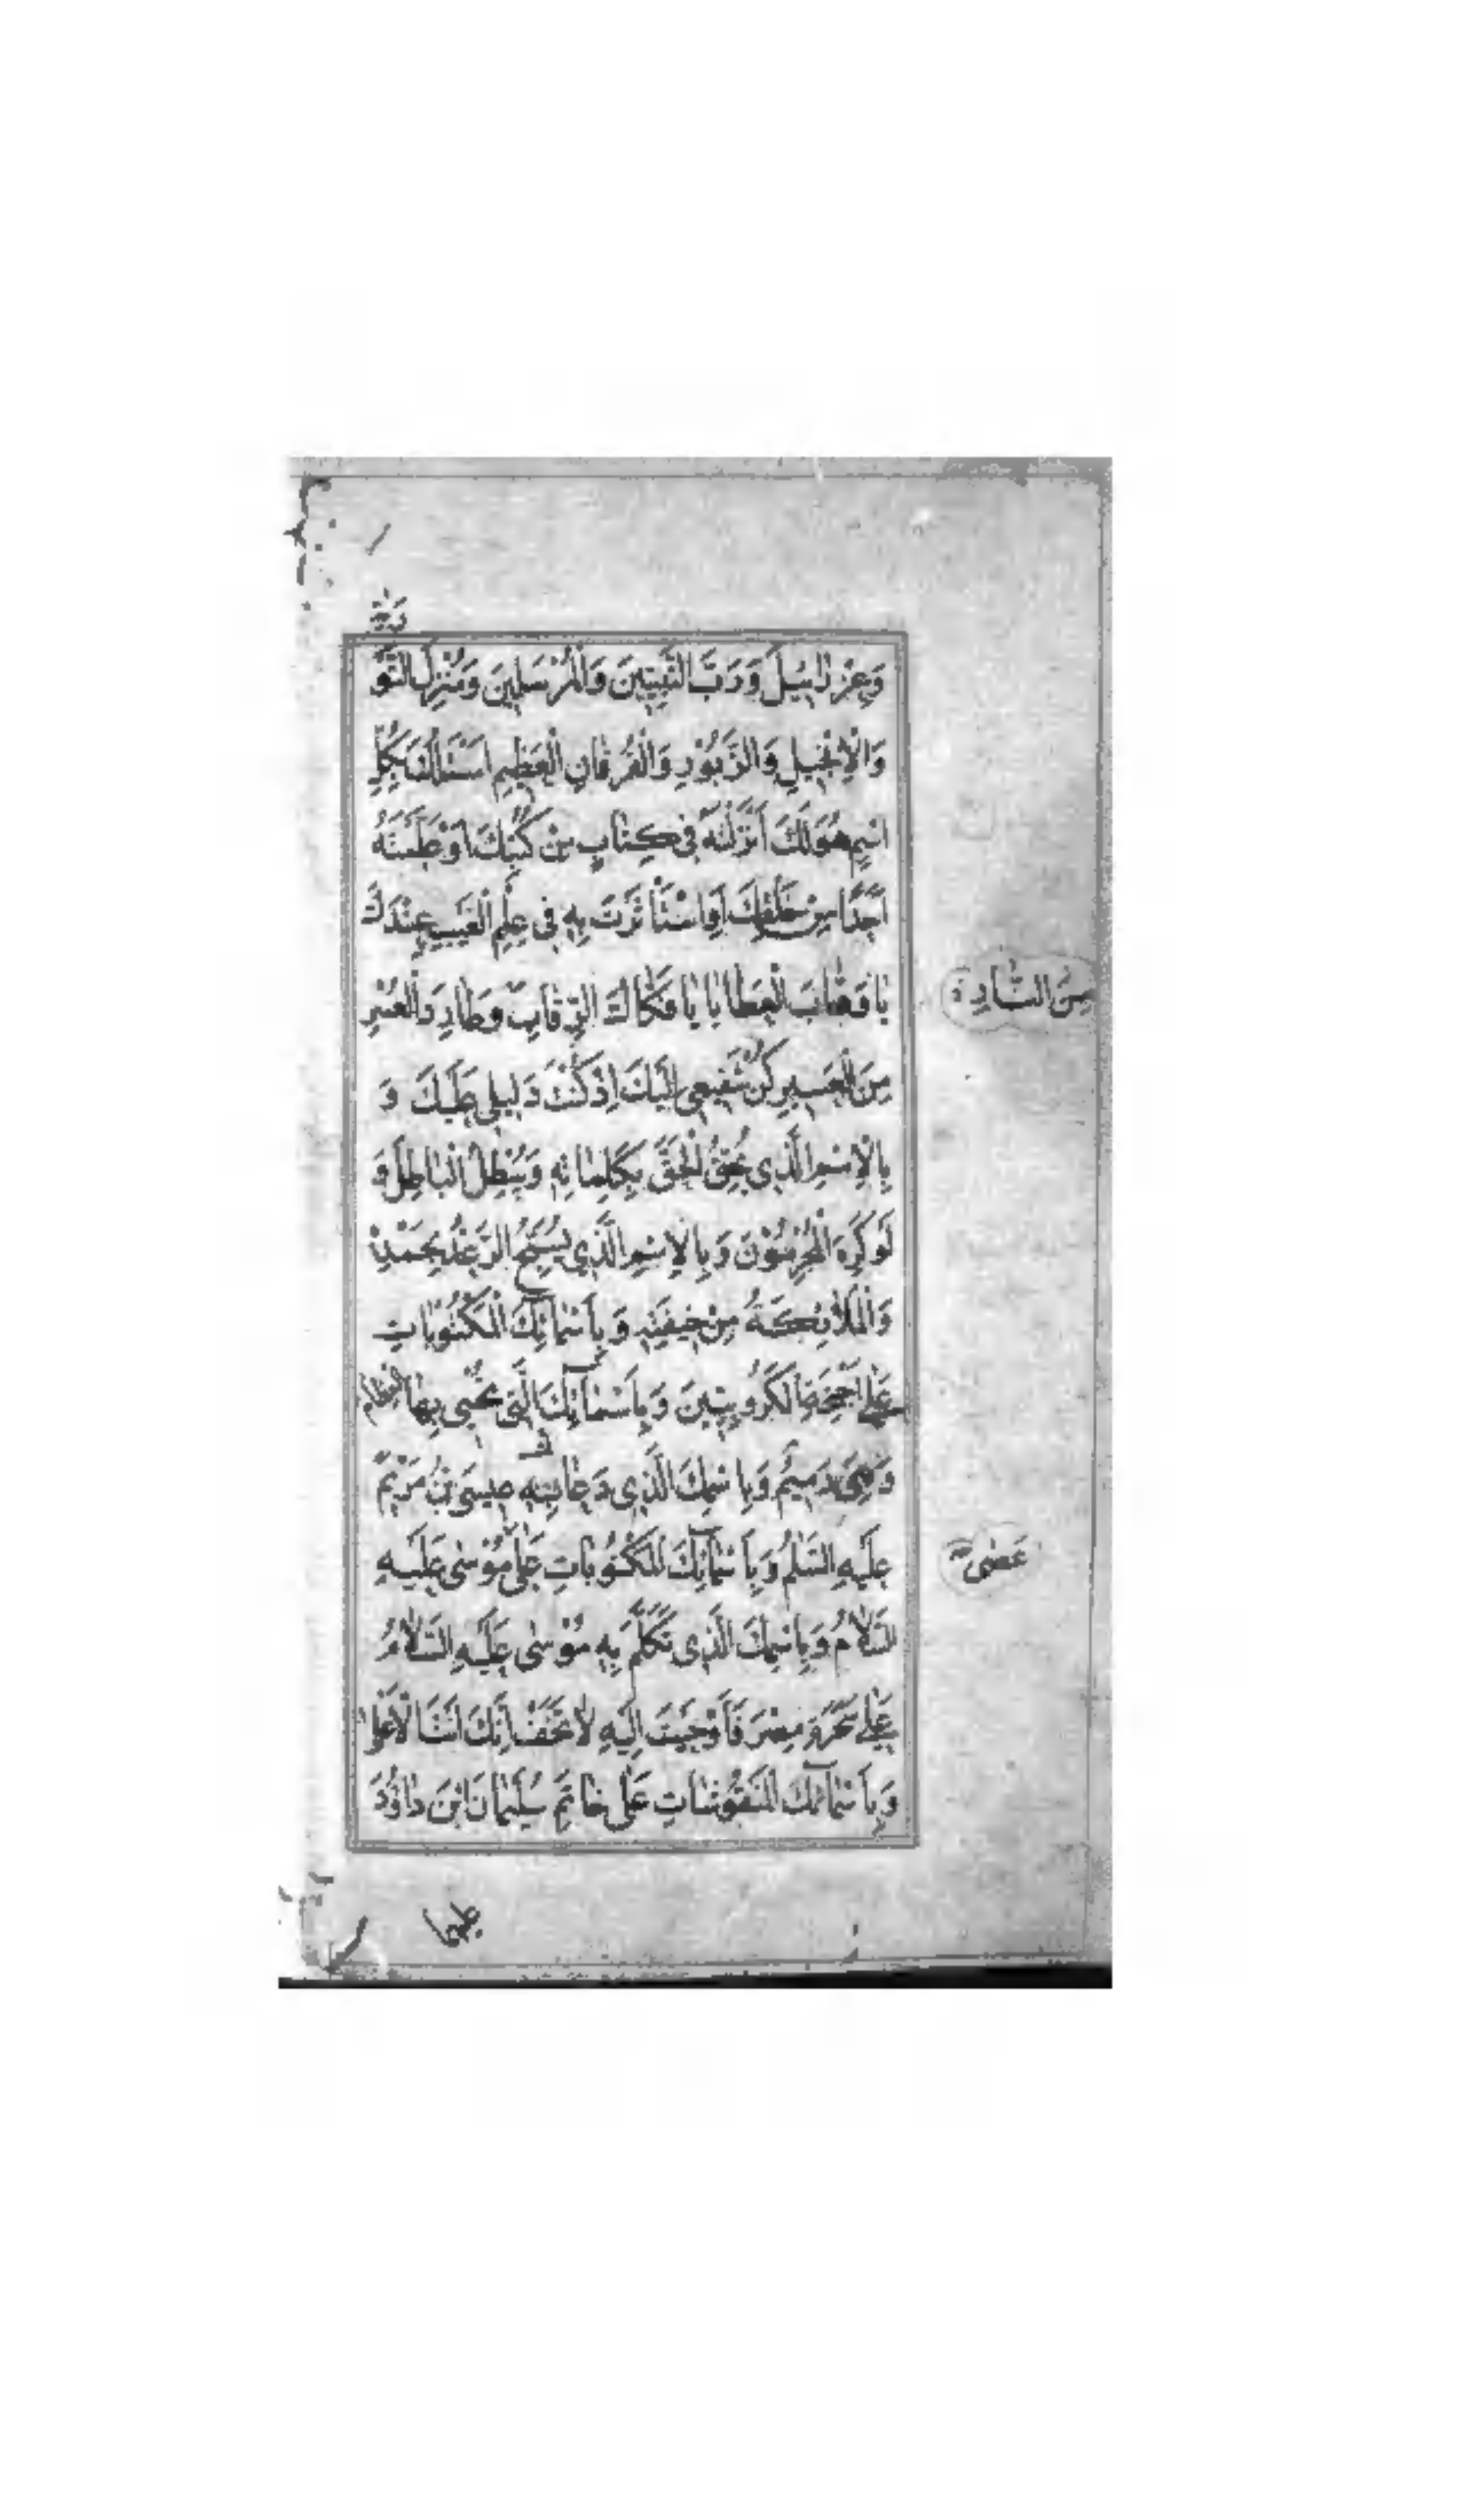 رية
وَعِزْرَائِيلَ وَرَبَّ النَّبِيِّينَ وَالْمُرْسَلِينَ وَمُنْزِلَ التَّوْ
وَالْإِنْجِيلِ وَالزَّبُورِ وَالْفُرْقَانِ الْعَظِيمِ اَسْئَلُكَ بِكُلِّ
اسْمٍ هُوَ لَكَ اَنْزَلْتَهُ فِي كِتَابٍ مِنْ كُتُبِكَ اَوْ عَلَّمْتَهُ
اَحَدًا مِنْ خَلْقِكَ اَوِ اسْتَأْثَرْتَ بِهِ فِي عِلْمِ الْغَيْبِ عِنْدَكَ
يَا وَهَّابَ الْعَطَايَا يَا فَكَّاكَ الرِّقَابِ وَطَارِدَ الْعُسْرِ
مِنَ النَّارِ
مِنَ الْعَسِيرِ كُنْ شَفِيعِي اِلَيْكَ اِذْ كُنْتَ دَلِيلِي عَلَيْكَ وَ
بِالْاِسْمِ الَّذِي يُحِقُّ الْحَقَّ بِكَلِمَاتِهِ وَيُبْطِلُ الْبَاطِلَ وَ
لَوْ كَرِهَ الْمُجْرِمُونَ وَبِالْاِسْمِ الَّذِي يُسَبِّحُ الرَّعْدُ بِحَمْدِهِ
وَالْمَلَائِكَةُ مِنْ خِيفَتِهِ وَبِاَسْمَائِكَ الْمَكْتُوبَاتِ
عَلَى اَجْنِحَةِ الْكَرُوبِيِّينَ وَبِاَسْمَائِكَ الَّتِي تُحْيِي بِهَا الْعِظَامَ
وَهِيَ رَمِيمٌ وَبِاسْمِكَ الَّذِي دَعَاكَ بِهِ عِيسَى بْنُ مَرْيَمَ
عَلَيْهِ السَّلَمُ وَبِاَسْمَائِكَ الْمَكْتُوبَاتِ عَلَى مُوسَى عَلَيْهِ
عَصَى
السَّلَامُ وَبِاسْمِكَ الَّذِي تَكَلَّمَ بِهِ مُوسَى عَلَيْهِ السَّلَامُ
عَلَى سَحَرَةِ مِصْرَ فَاَوْحَيْتَ اِلَيْهِ لَا تَخَفْ اِنَّكَ اَنْتَ الْاَعْلَى
وَبِاَسْمَائِكَ الْمَنْقُوشَاتِ عَلَى خَاتَمِ سُلَيْمَانَ ابْنِ دَاوُدَ
عليهما